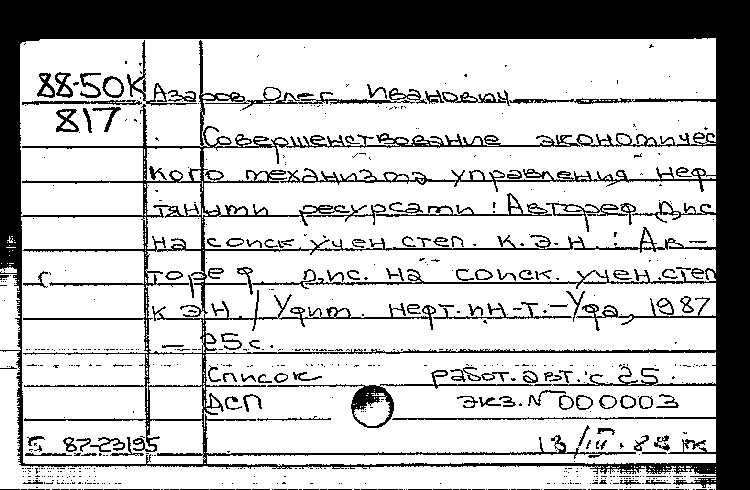 88-50К Азаров, Олег Иванович
817
Совершенствование экономичес
кого механизма управления неф
тяными ресурсами : Автореф дис
на соиск. учен. степ. к.э.н. : Ав-
тореф дис. на соиск. учен. степ
к.э.н. / Уфим. нефт. ин-т. - Уфа, 1987
- 25 с.
Список работ. авт. : с 25.
ДСП экз. № 000003
5 87-23195 18/III.88